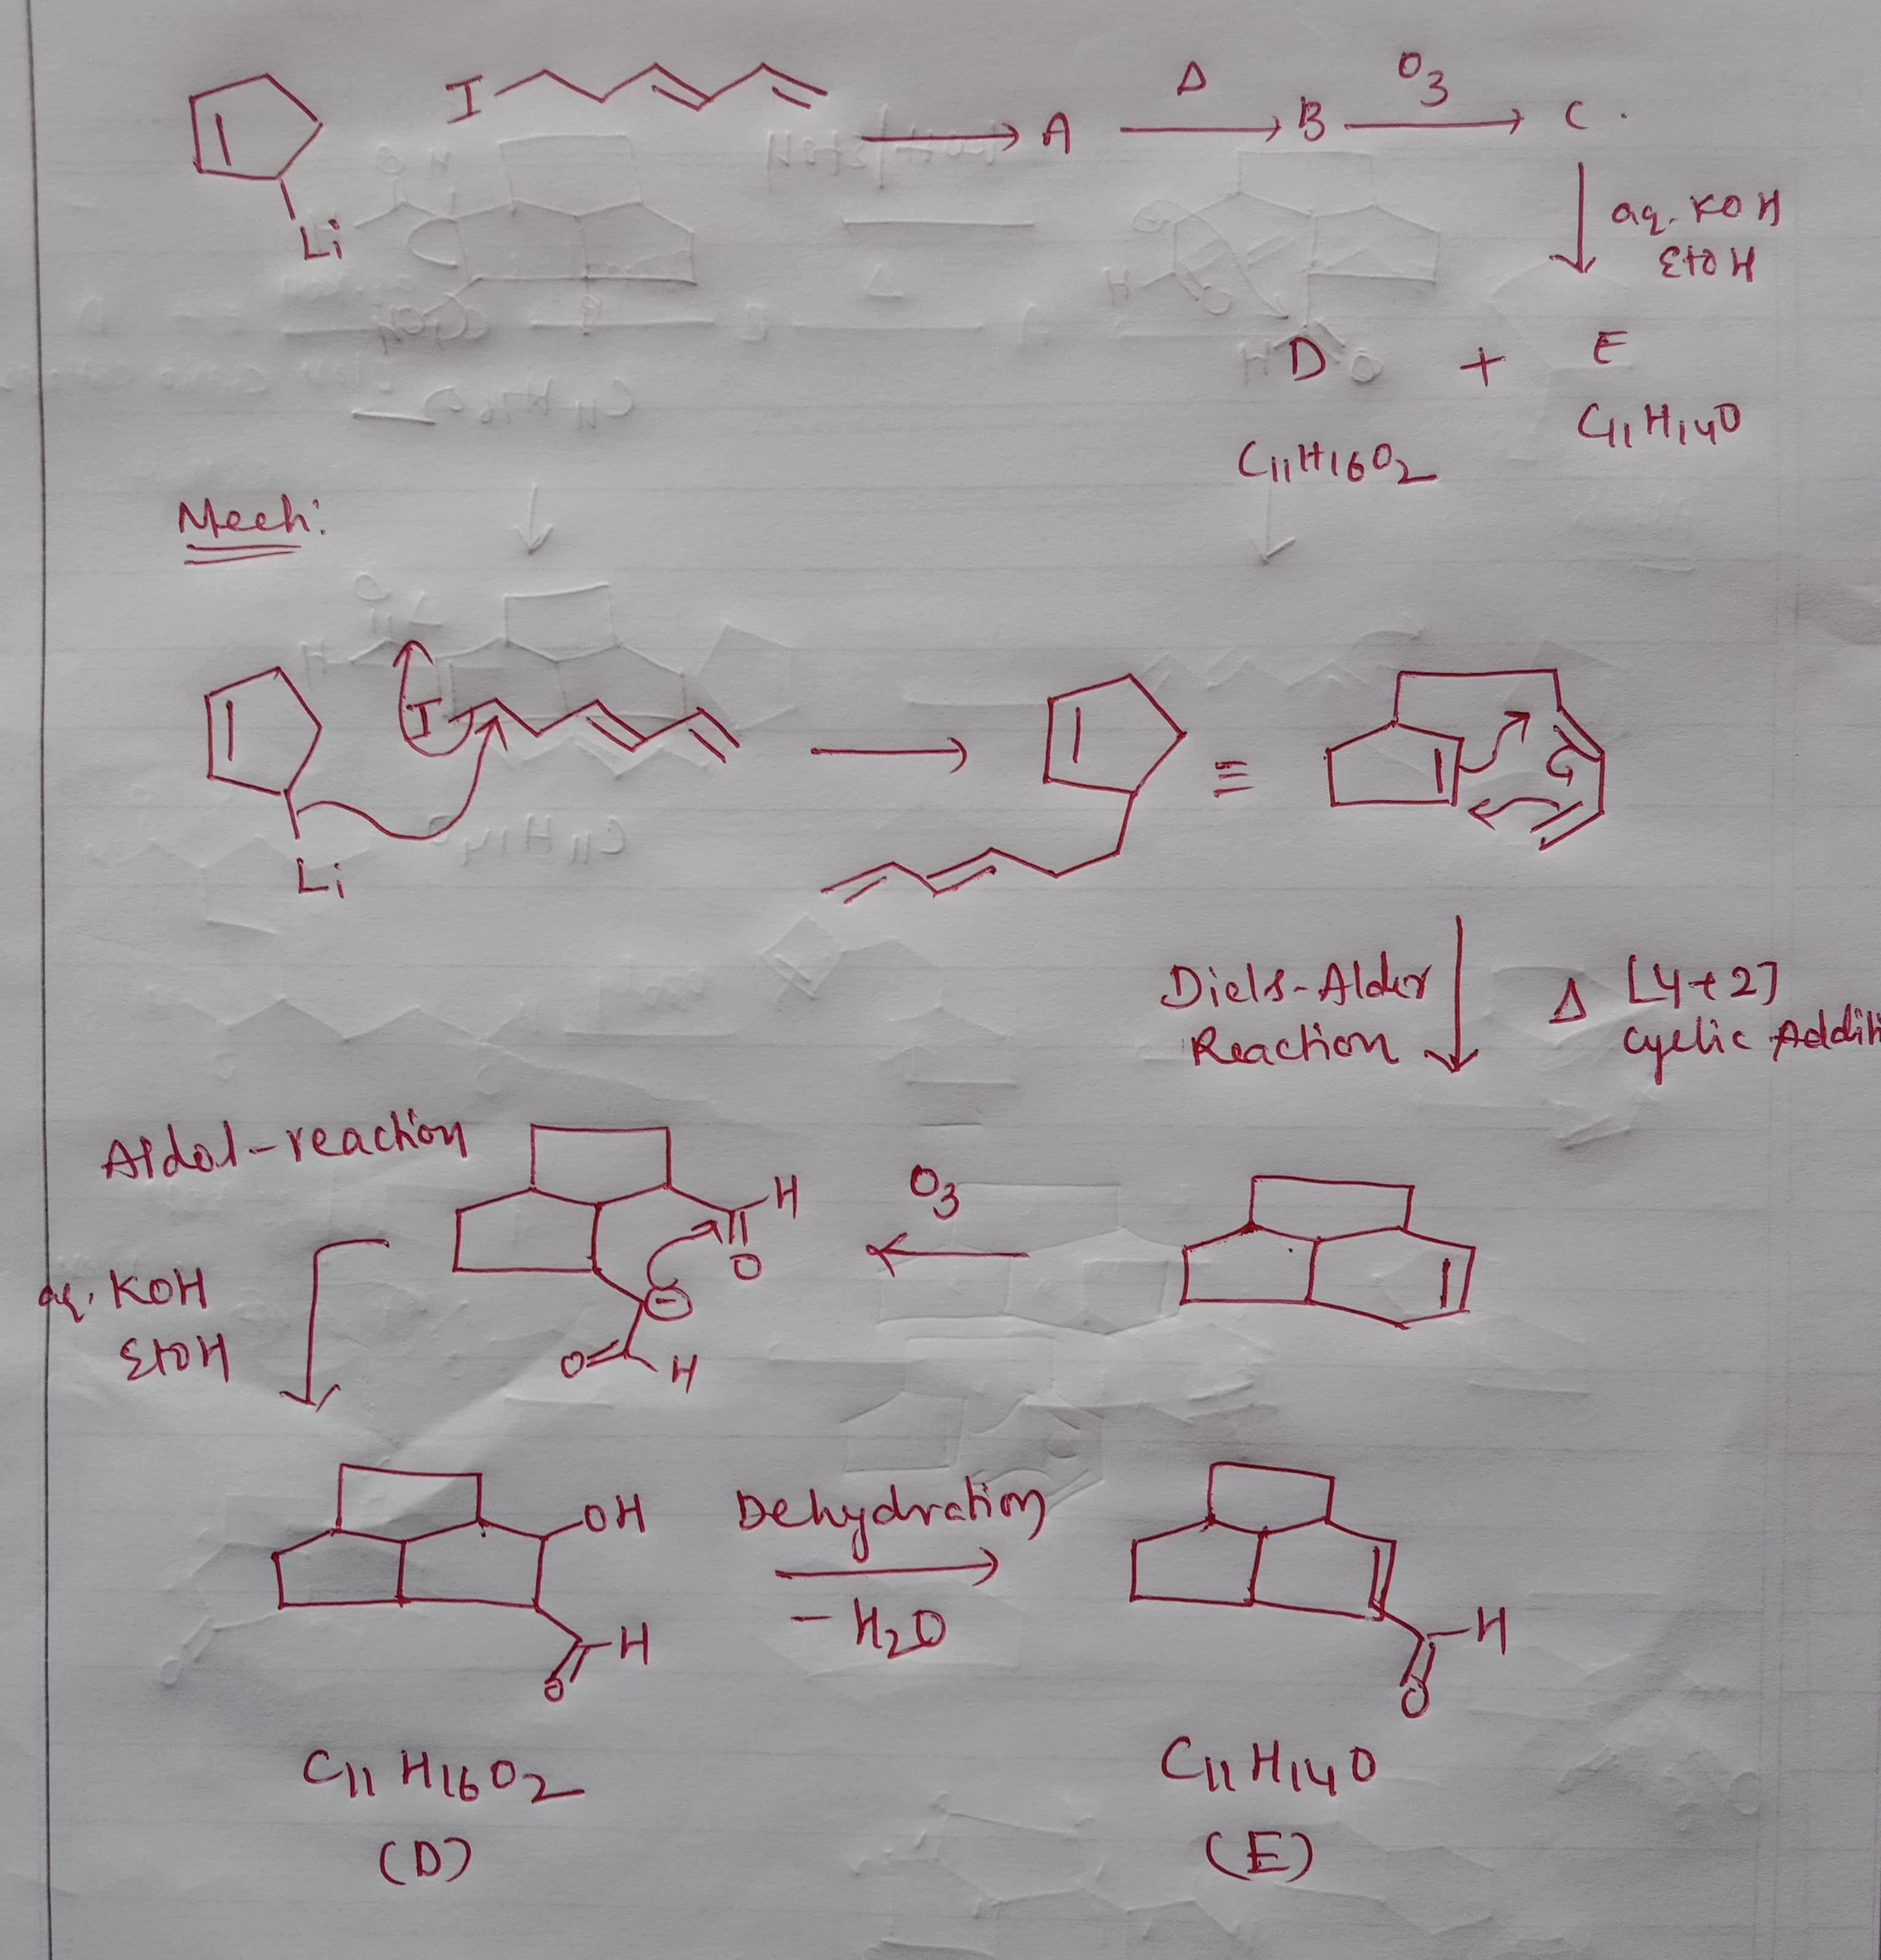 I → A Δ → B O3 → C .
Li
aq. KOH
EtOH
D + E
C11H14O
C11H16O2
Mech:
I
Li
≡
Diels-Alder
Reaction
Δ [4+2]
cyclic Additi
Aldol-reaction
H
O
O3
aq. KOH
EtOH
O H
OH
Dehydration
-H2O
H
O
H
O
C11H16O2
(D)
C11H14O
(E)